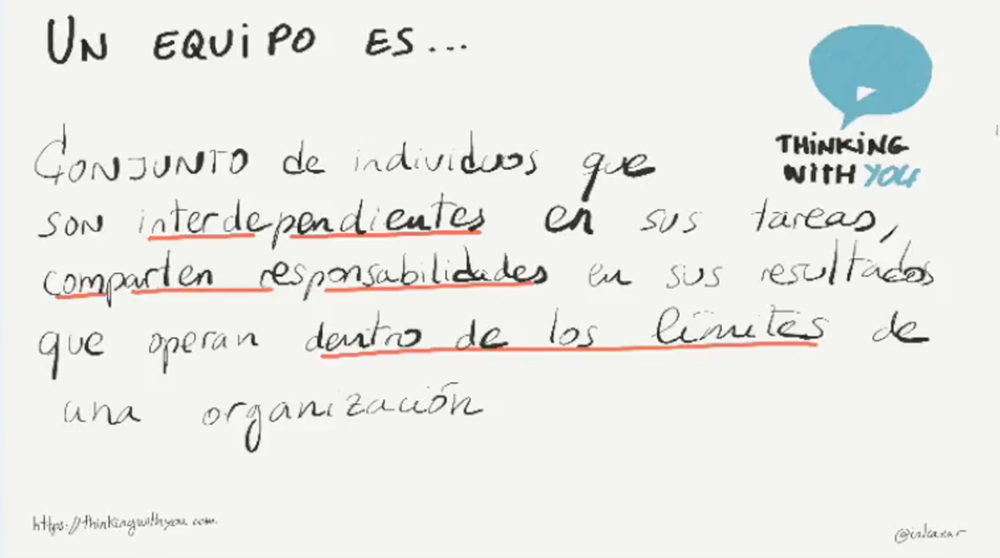 UN EQUIPO ES...
THINKING
WITH YOU
CONJUNTO de individuos que
SON interdependientes en sus tareas,
comparten responsabilidades en sus resultados
que operan dentro de los límites de
una organización
https://thinkingwithyou.com